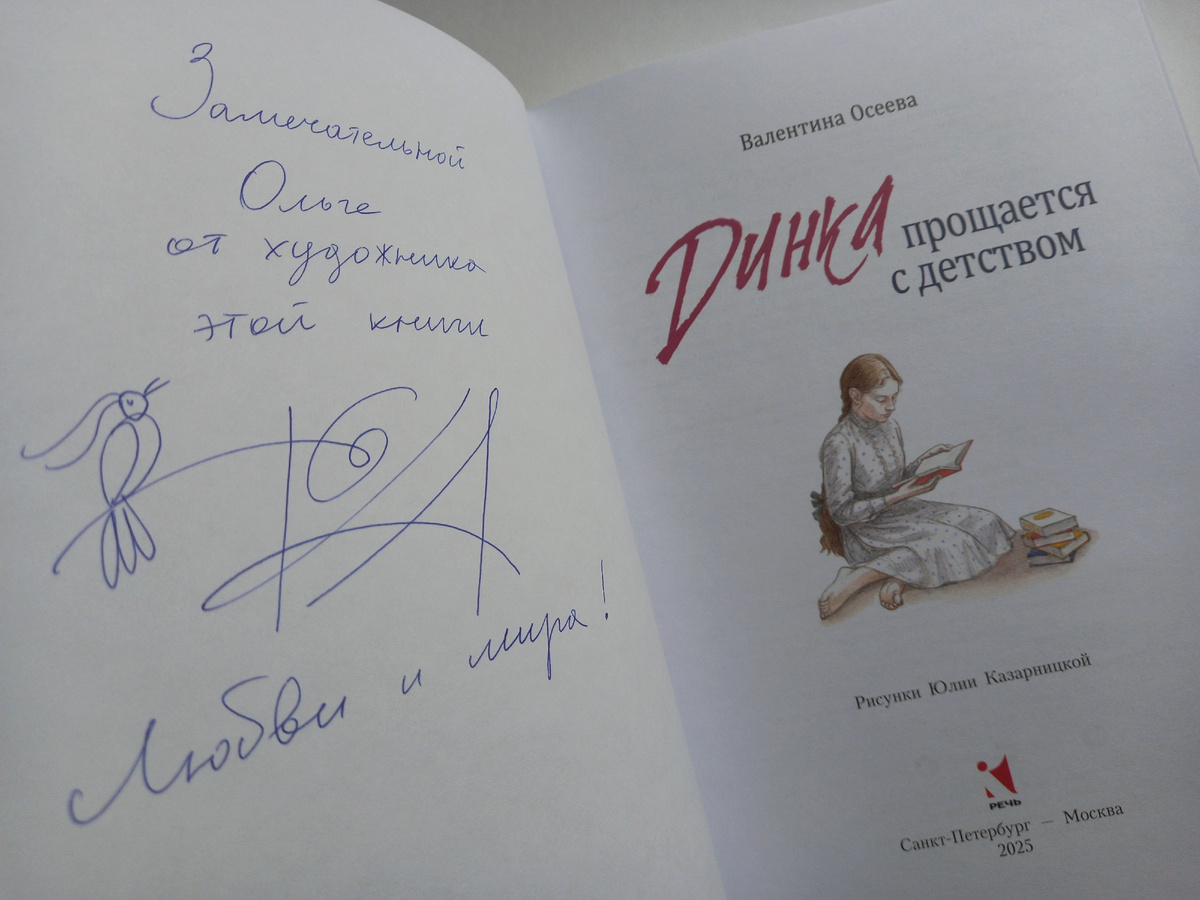 Замечательной
Ольге
от художника
этой книги
Любви и мира!
Валентина Осеева
Динка прощается
с детством
Рисунки Юлии Казарницкой
РЕЧЬ
Санкт-Петербург — Москва
2025